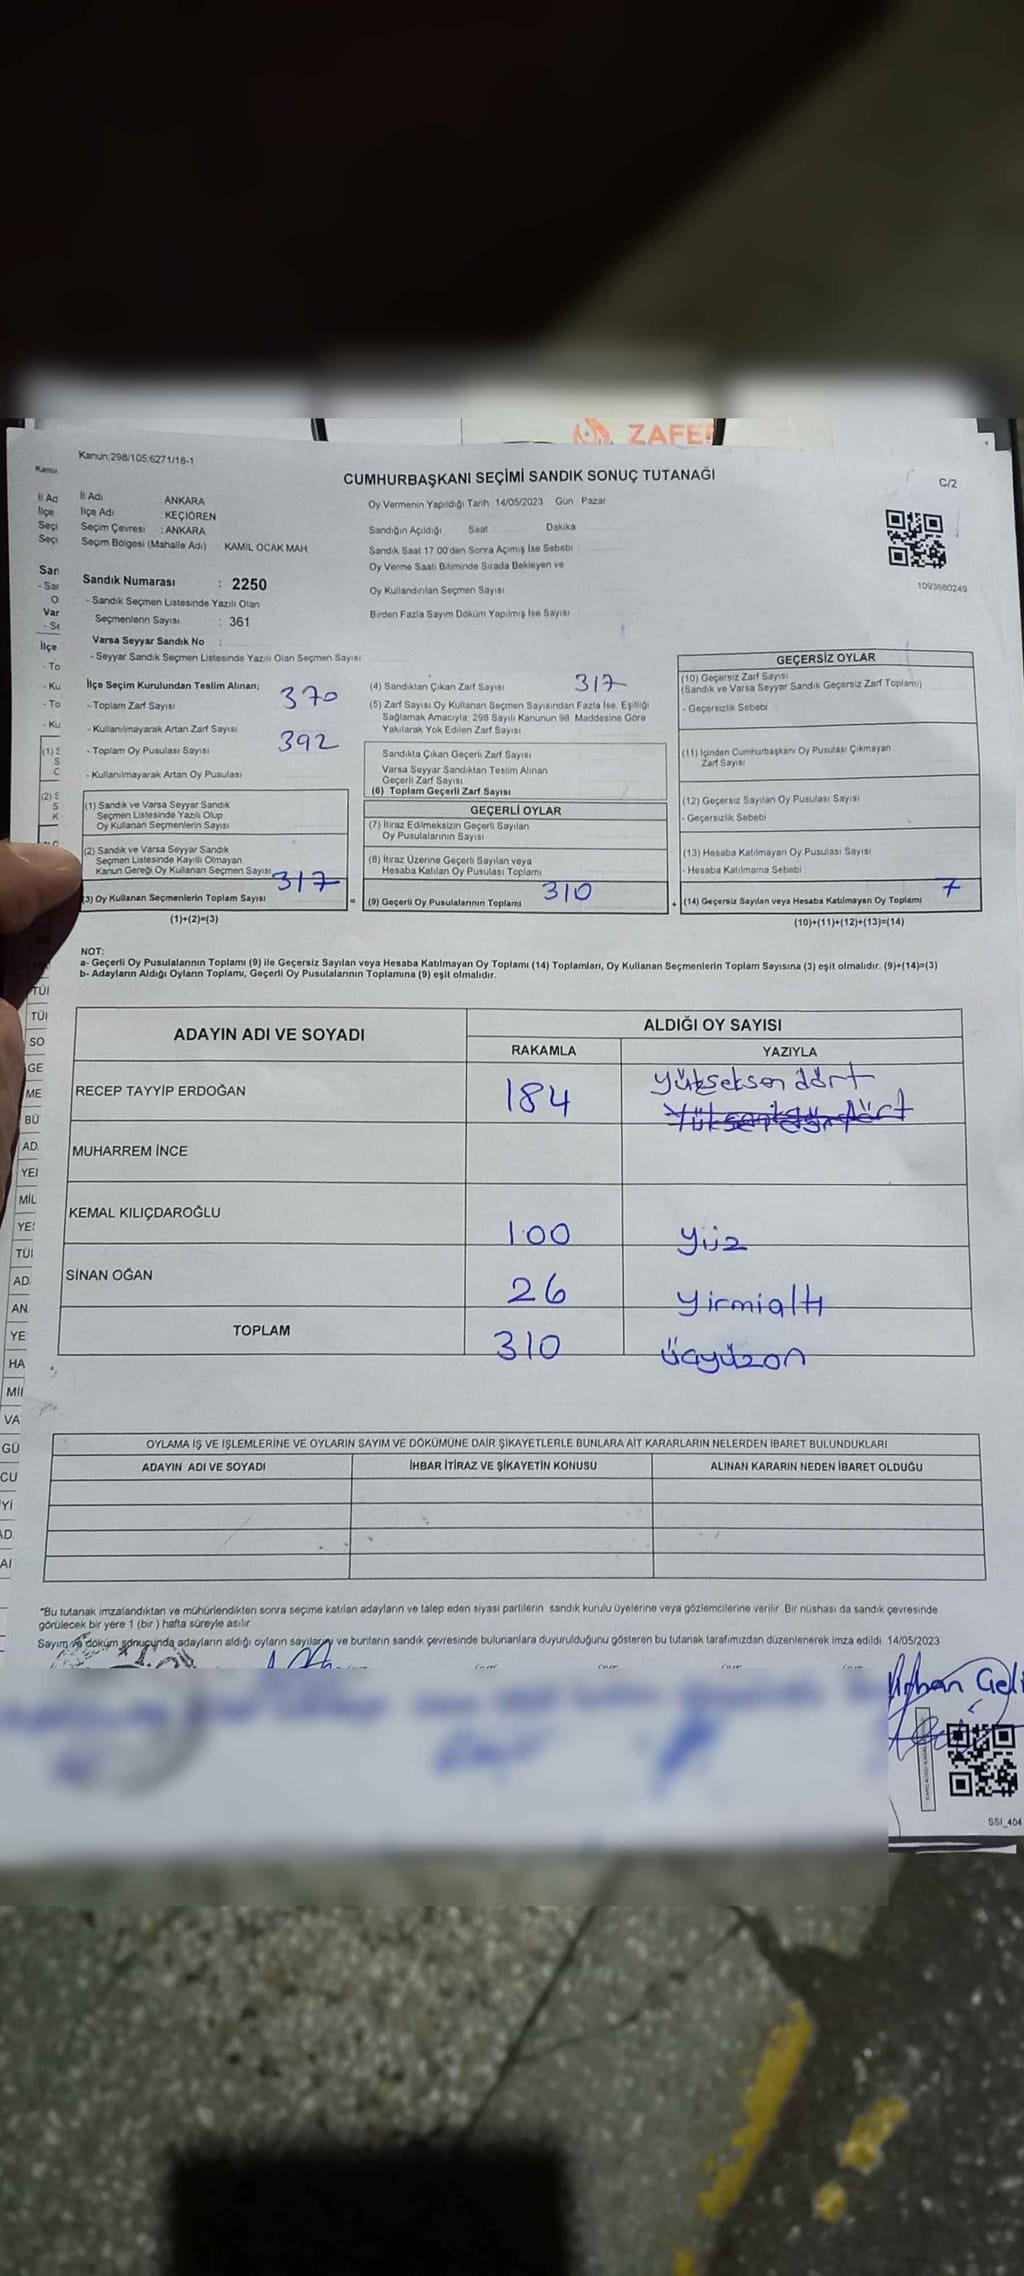 ZAFE
Kanun:298/105;6271/18-1
CUMHURBAŞKANI SEÇİMİ SANDIK SONUÇ TUTANAĞI
C/2
İl Adı ANKARA
İlçe Adı : KEÇİÖREN
Seçim Çevresi : ANKARA
Seçim Bölgesi (Mahalle Adı) KAMİL OCAK MAH.
Oy Vermenin Yapıldığı Tarih 14/05/2023 Gün Pazar
Sandığın Açıldığı Saat Dakika
Sandık Saat 17.00'den Sonra Açımış İse Sebebi
Oy Verme Saati Bitiminde Sırada Bekleyen ve
Oy Kullandırılan Seçmen Sayısı
Birden Fazla Sayım Döküm Yapılmış İse Sayısı :
1093680249
Sandık Numarası : 2250
- Sandık Seçmen Listesinde Yazılı Olan
Seçmenlerin Sayısı : 361
Varsa Seyyar Sandık No :
- Seyyar Sandık Seçmen Listesinde Yazılı Olan Seçmen Sayısı:
İlçe Seçim Kurulundan Teslim Alınan;
- Toplam Zarf Sayısı 370
- Kullanılmayarak Artan Zarf Sayısı
- Toplam Oy Pusulası Sayısı 392
- Kullanılmayarak Artan Oy Pusulası
(1) Sandık ve Varsa Seyyar Sandık
Seçmen Listesinde Yazılı Olup
Oy Kullanan Seçmenlerin Sayısı
(2) Sandık ve Varsa Seyyar Sandık
Seçmen Listesinde Kayıtlı Olmayan
Kanun Gereği Oy Kullanan Seçmen Sayısı
(3) Oy Kullanan Seçmenlerin Toplam Sayısı 317
(1)+(2)=(3)
(4) Sandıktan Çıkan Zarf Sayısı 317
(5) Zarf Sayısı Oy Kullanan Seçmen Sayısından Fazla İse, Eşitliği
Sağlamak Amacıyla, 298 Sayılı Kanunun 98. Maddesine Göre
Yakılarak Yok Edilen Zarf Sayısı
Sandıkta Çıkan Geçerli Zarf Sayısı
Varsa Seyyar Sandıktan Teslim Alınan
Geçerli Zarf Sayısı
(6) Toplam Geçerli Zarf Sayısı
GEÇERLİ OYLAR
(7) İtiraz Edilmeksizin Geçerli Sayılan
Oy Pusulalarının Sayısı
(8) İtiraz Üzerine Geçerli Sayılan veya
Hesaba Katılan Oy Pusulası Toplamı
= (9) Geçerli Oy Pusulalarının Toplamı 310
GEÇERSİZ OYLAR
(10) Geçersiz Zarf Sayısı
(Sandık ve Varsa Seyyar Sandık Geçersiz Zarf Toplamı)
- Geçersizlik Sebebi
(11) İçinden Cumhurbaşkanı Oy Pusulası Çıkmayan
Zarf Sayısı
(12) Geçersiz Sayılan Oy Pusulası Sayısı
- Geçersizlik Sebebi
(13) Hesaba Katılmayan Oy Pusulası Sayısı
- Hesaba Katılmama Sebebi
+ (14) Geçersiz Sayılan veya Hesaba Katılmayan Oy Toplamı 7
(10)+(11)+(12)+(13)=(14)
NOT:
a- Geçerli Oy Pusulalarının Toplamı (9) ile Geçersiz Sayılan veya Hesaba Katılmayan Oy Toplamı (14) Toplamları, Oy Kullanan Seçmenlerin Toplam Sayısına (3) eşit olmalıdır. (9)+(14)=(3)
b- Adayların Aldığı Oyların Toplamı, Geçerli Oy Pusulalarının Toplamına (9) eşit olmalıdır.
ADAYIN ADI VE SOYADI ALDIĞI OY SAYISI
RAKAMLA YAZIYLA
RECEP TAYYİP ERDOĞAN 184 yükseksen dört
MUHARREM İNCE
KEMAL KILIÇDAROĞLU 100 yüz
SİNAN OĞAN 26 yirmialtı
TOPLAM 310 üçyüzon
OYLAMA İŞ VE İŞLEMLERİNE VE OYLARIN SAYIM VE DÖKÜMÜNE DAİR ŞİKAYETLERLE BUNLARA AİT KARARLARIN NELERDEN İBARET BULUNDUKLARI
ADAYIN ADI VE SOYADI İHBAR İTİRAZ VE ŞİKAYETİN KONUSU ALINAN KARARIN NEDEN İBARET OLDUĞU
*Bu tutanak imzalandıktan ve mühürlendikten sonra seçime katılan adayların ve talep eden siyasi partilerin sandık kurulu üyelerine veya gözlemcilerine verilir. Bir nüshası da sandık çevresinde
görülecek bir yere 1 (bir ) hafta süreyle asılır.
Sayım ve döküm sonucunda adayların aldığı oyların sayılarını ve bunların sandık çevresinde bulunanlara duyurulduğunu gösteren bu tutanak tarafımızdan düzenlenerek imza edildi. 14/05/2023
SSI_404